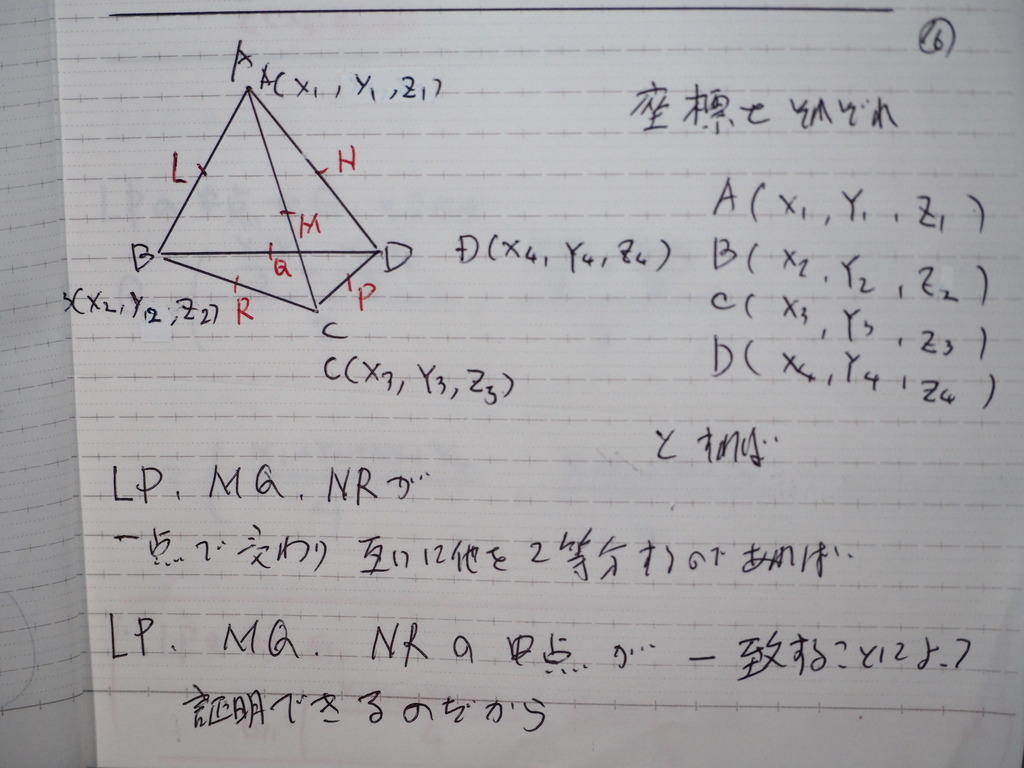 ⑯
A
A(x₁, Y₁, Z₁)
座標をそれぞれ
L
H
A(x₁, Y₁, Z₁)
M
B
Q
D
D(x₄, Y₄, Z₄)
B(x₂, Y₂, Z₂)
R
P
C(x₃, Y₃, Z₃)
(x₂, Y₁₂, Z₂)
C
D(x₄, Y₄, Z₄)
C(x₃, Y₃, Z₃)
とすれば
LP. MQ. NRが
一点で交わり 互いに他を2等分するのであれば
LP. MQ. NRの中点が 一致することによって
証明できるのだから